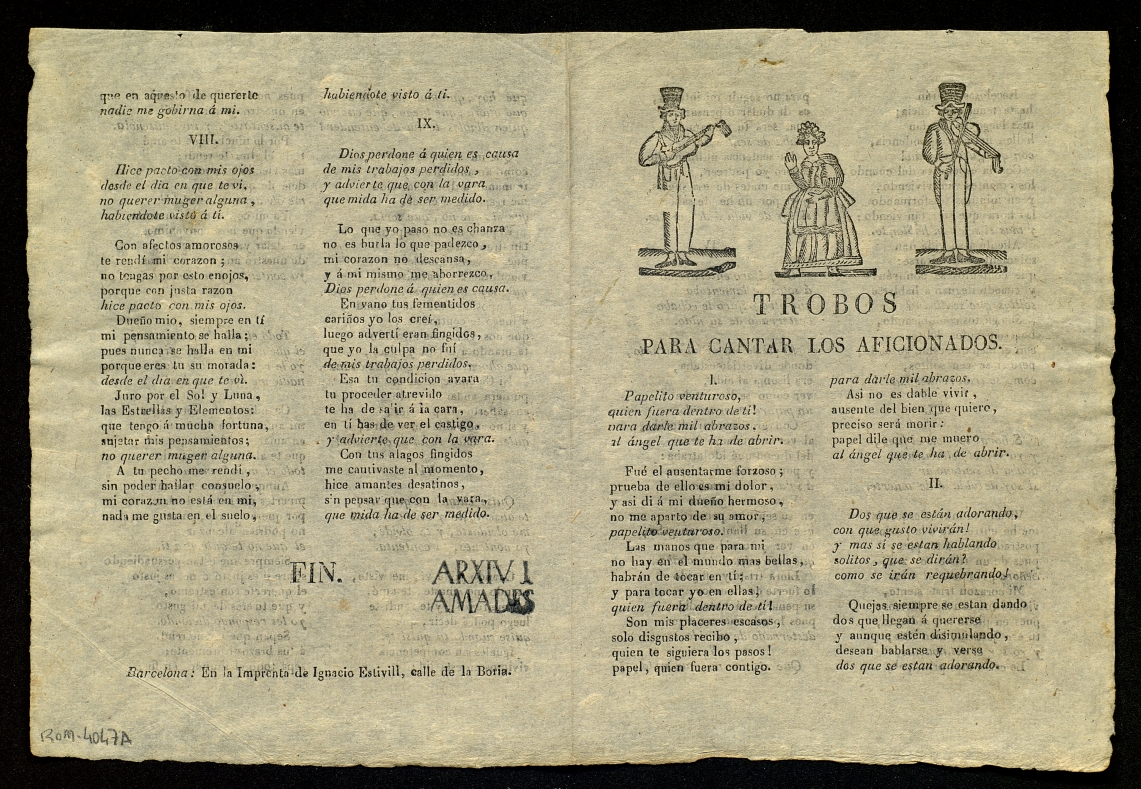 que en aquesto de quererte
nadie me gobirna á mi.
VIII.
Hice pacto con mis ojos
desde el dia en que te vi,
no querer muger alguna,
habiendote visto á tí.
Con afectos amorosos
te rendí mi corazon;
no tengas por esto enojos,
porque con justa razon
hice pacto con mis ojos.
Dueño mio, siempre en tí
mi pensamiento se halla;
pues nunca se halla en mi
porque eres tu su morada:
desde el dia en que te vi.
Juro por el Sol y Luna,
las Estrellas y Elementos:
que tengo á mucha fortuna,
sujetar mis pensamientos;
no querer muger alguna.
A tu pecho me rendí,
sin poder hallar consuelo,
mi corazon no está en mi,
nada me gusta en el suelo,
habiendote visto á ti.
IX.
Dios perdone á quien es causa
de mis trabajos perdidos,
y advierte que con la vara
que mida ha de ser medido.
Lo que yo paso no es chanza
no es burla lo que padezco,
mi corazon no descansa,
y á mi mismo me aborrezco,
Dios perdone á quien es causa.
En vano tus fementidos
cariños yo los creí,
luego advertí eran fingidos,
que yo la culpa no fuí
de mis trabajos perdidos.
Esa tu condicion avara
tu proceder atrevido
te ha de salir á la cara,
en tí has de ver el castigo,
y advierte que con la vara.
Con tus alagos fingidos
me cautivaste al momento,
hice amantes desatinos,
sin pensar que con la vara,
que mida ha de ser medido.
FIN.
ARXIU J.
AMADES
Barcelona: En la Imprenta de Ignacio Estivill, calle de la Boria.
ROM-4047A
TROBOS
PARA CANTAR LOS AFICIONADOS.
I.
Papelito venturoso,
quien fuera dentro de ti!
para darle mil abrazos
al ángel que te ha de abrir.
Fué el ausentarme forzoso;
prueba de ello es mi dolor,
y asi di á mi dueño hermoso,
no me aparto de su amor,
papelito venturoso.
Las manos que para mi
no hay en el mundo mas bellas,
habrán de tocar en tí;
y para tocar yo en ellas,
quien fuera dentro de ti!
Son mis placeres escasos,
solo disgustos recibo,
quien te siguiera los pasos!
papel, quien fuera contigo.
para darle mil abrazos.
Asi no es dable vivir,
ausente del bien que quiero,
preciso será morir:
papel dile que me muero
al ángel que te ha de abrir.
II.
Dos que se están adorando,
con que gusto vivirán!
y mas si se estan hablando
solitos, que se dirán?
como se irán requebrando!
Quejas siempre se estan dando
dos que llegan á quererse
y aunque estén disimulando,
desean hablarse y verse
dos que se estan adorando.